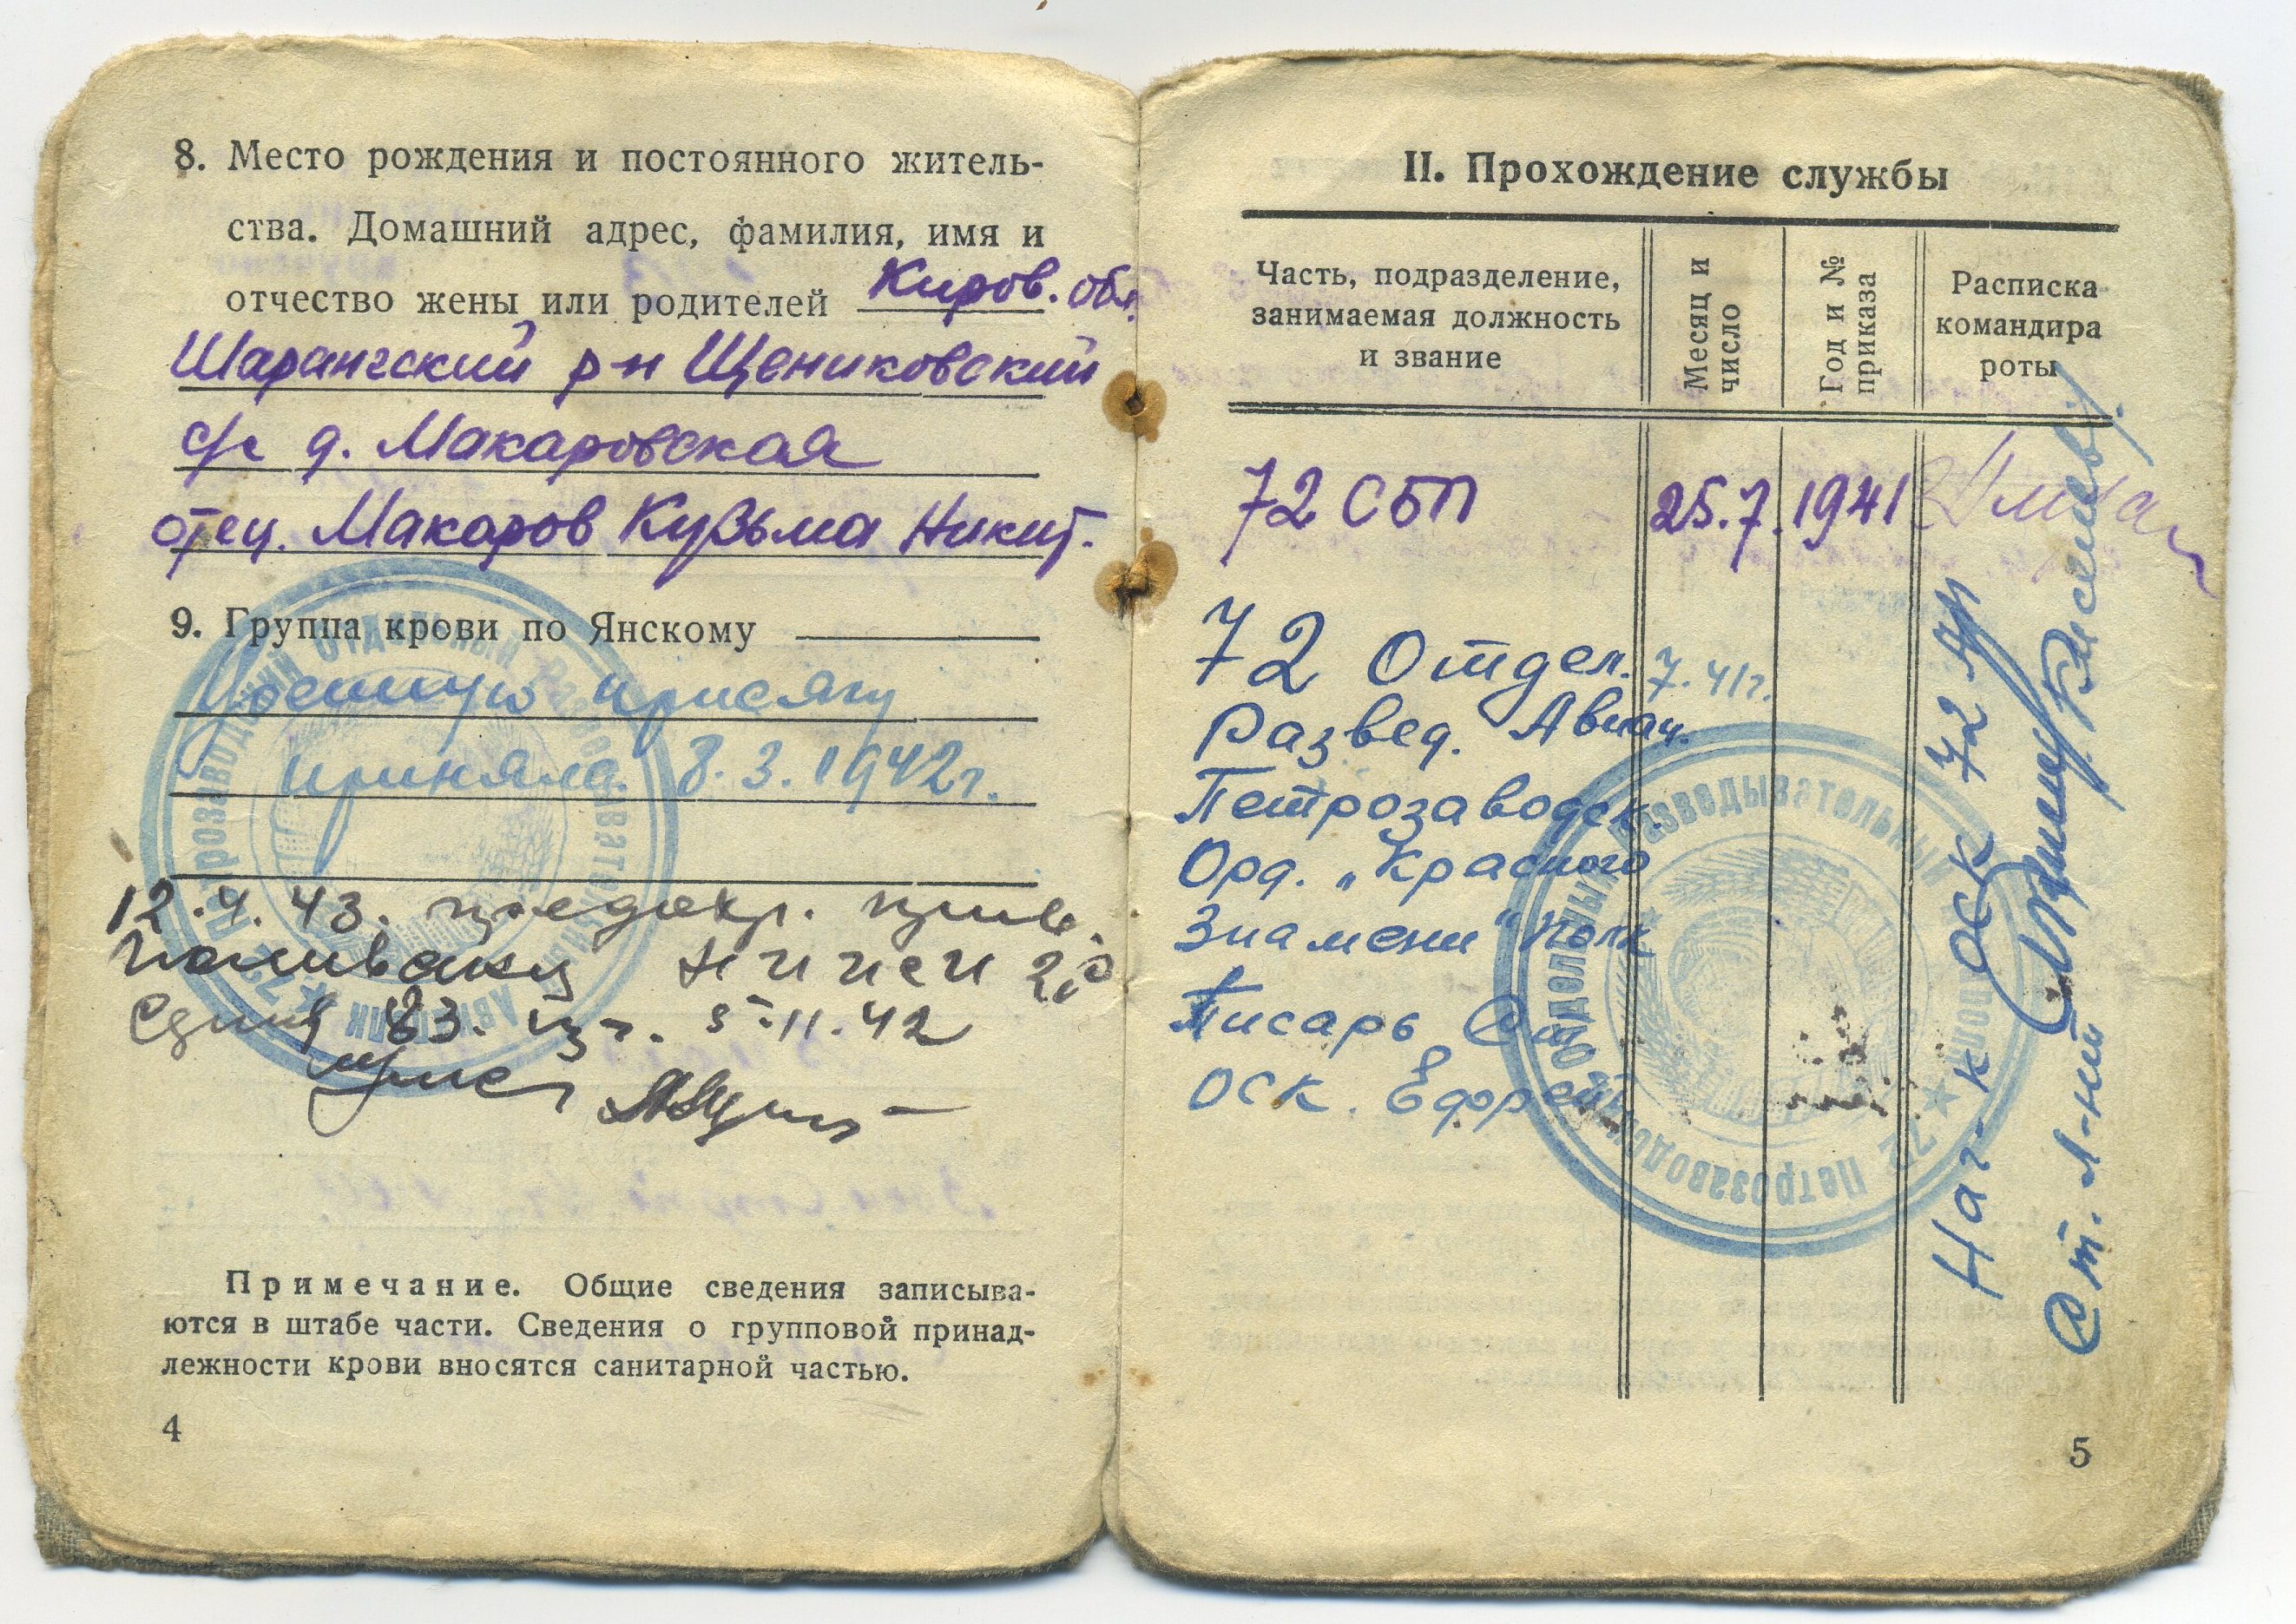 8. Место рождения и постоянного житель-
ства. Домашний адрес, фамилия, имя и
отчество жены или родителей Киров. обл.
Шарангский р-н Щениковский
с/с д. Макаровская
отец. Макаров Кузьма Никит.
9. Группа крови по Янскому
Военную присягу
приняла 8.3.1942г.
12.4.43. предохр. прив.
поливакц НИИСИ
83. 5.11.42
Примечание. Общие сведения записыва-
ются в штабе части. Сведения о групповой принад-
лежности крови вносятся санитарной частью.
4
II. Прохождение службы
Часть, подразделение,
занимаемая должность
и звание
Месяц и
число
Год и №
приказа
Расписка
командира
роты
72 СБП 25.7. 1941
72 Отдел. 7.41г.
Развед. Авиац.
Петрозаводск.
Орд. „Красного
Знамени" Полк
Писарь
ОСК. Ефрейт
Нач-к ОСК 72 АП
Ст. Л-нт
Петрозаводский Отдельный Разведывательный Авиополк
72 Петрозаводский Отдельный Разведывательный Авиополк
5